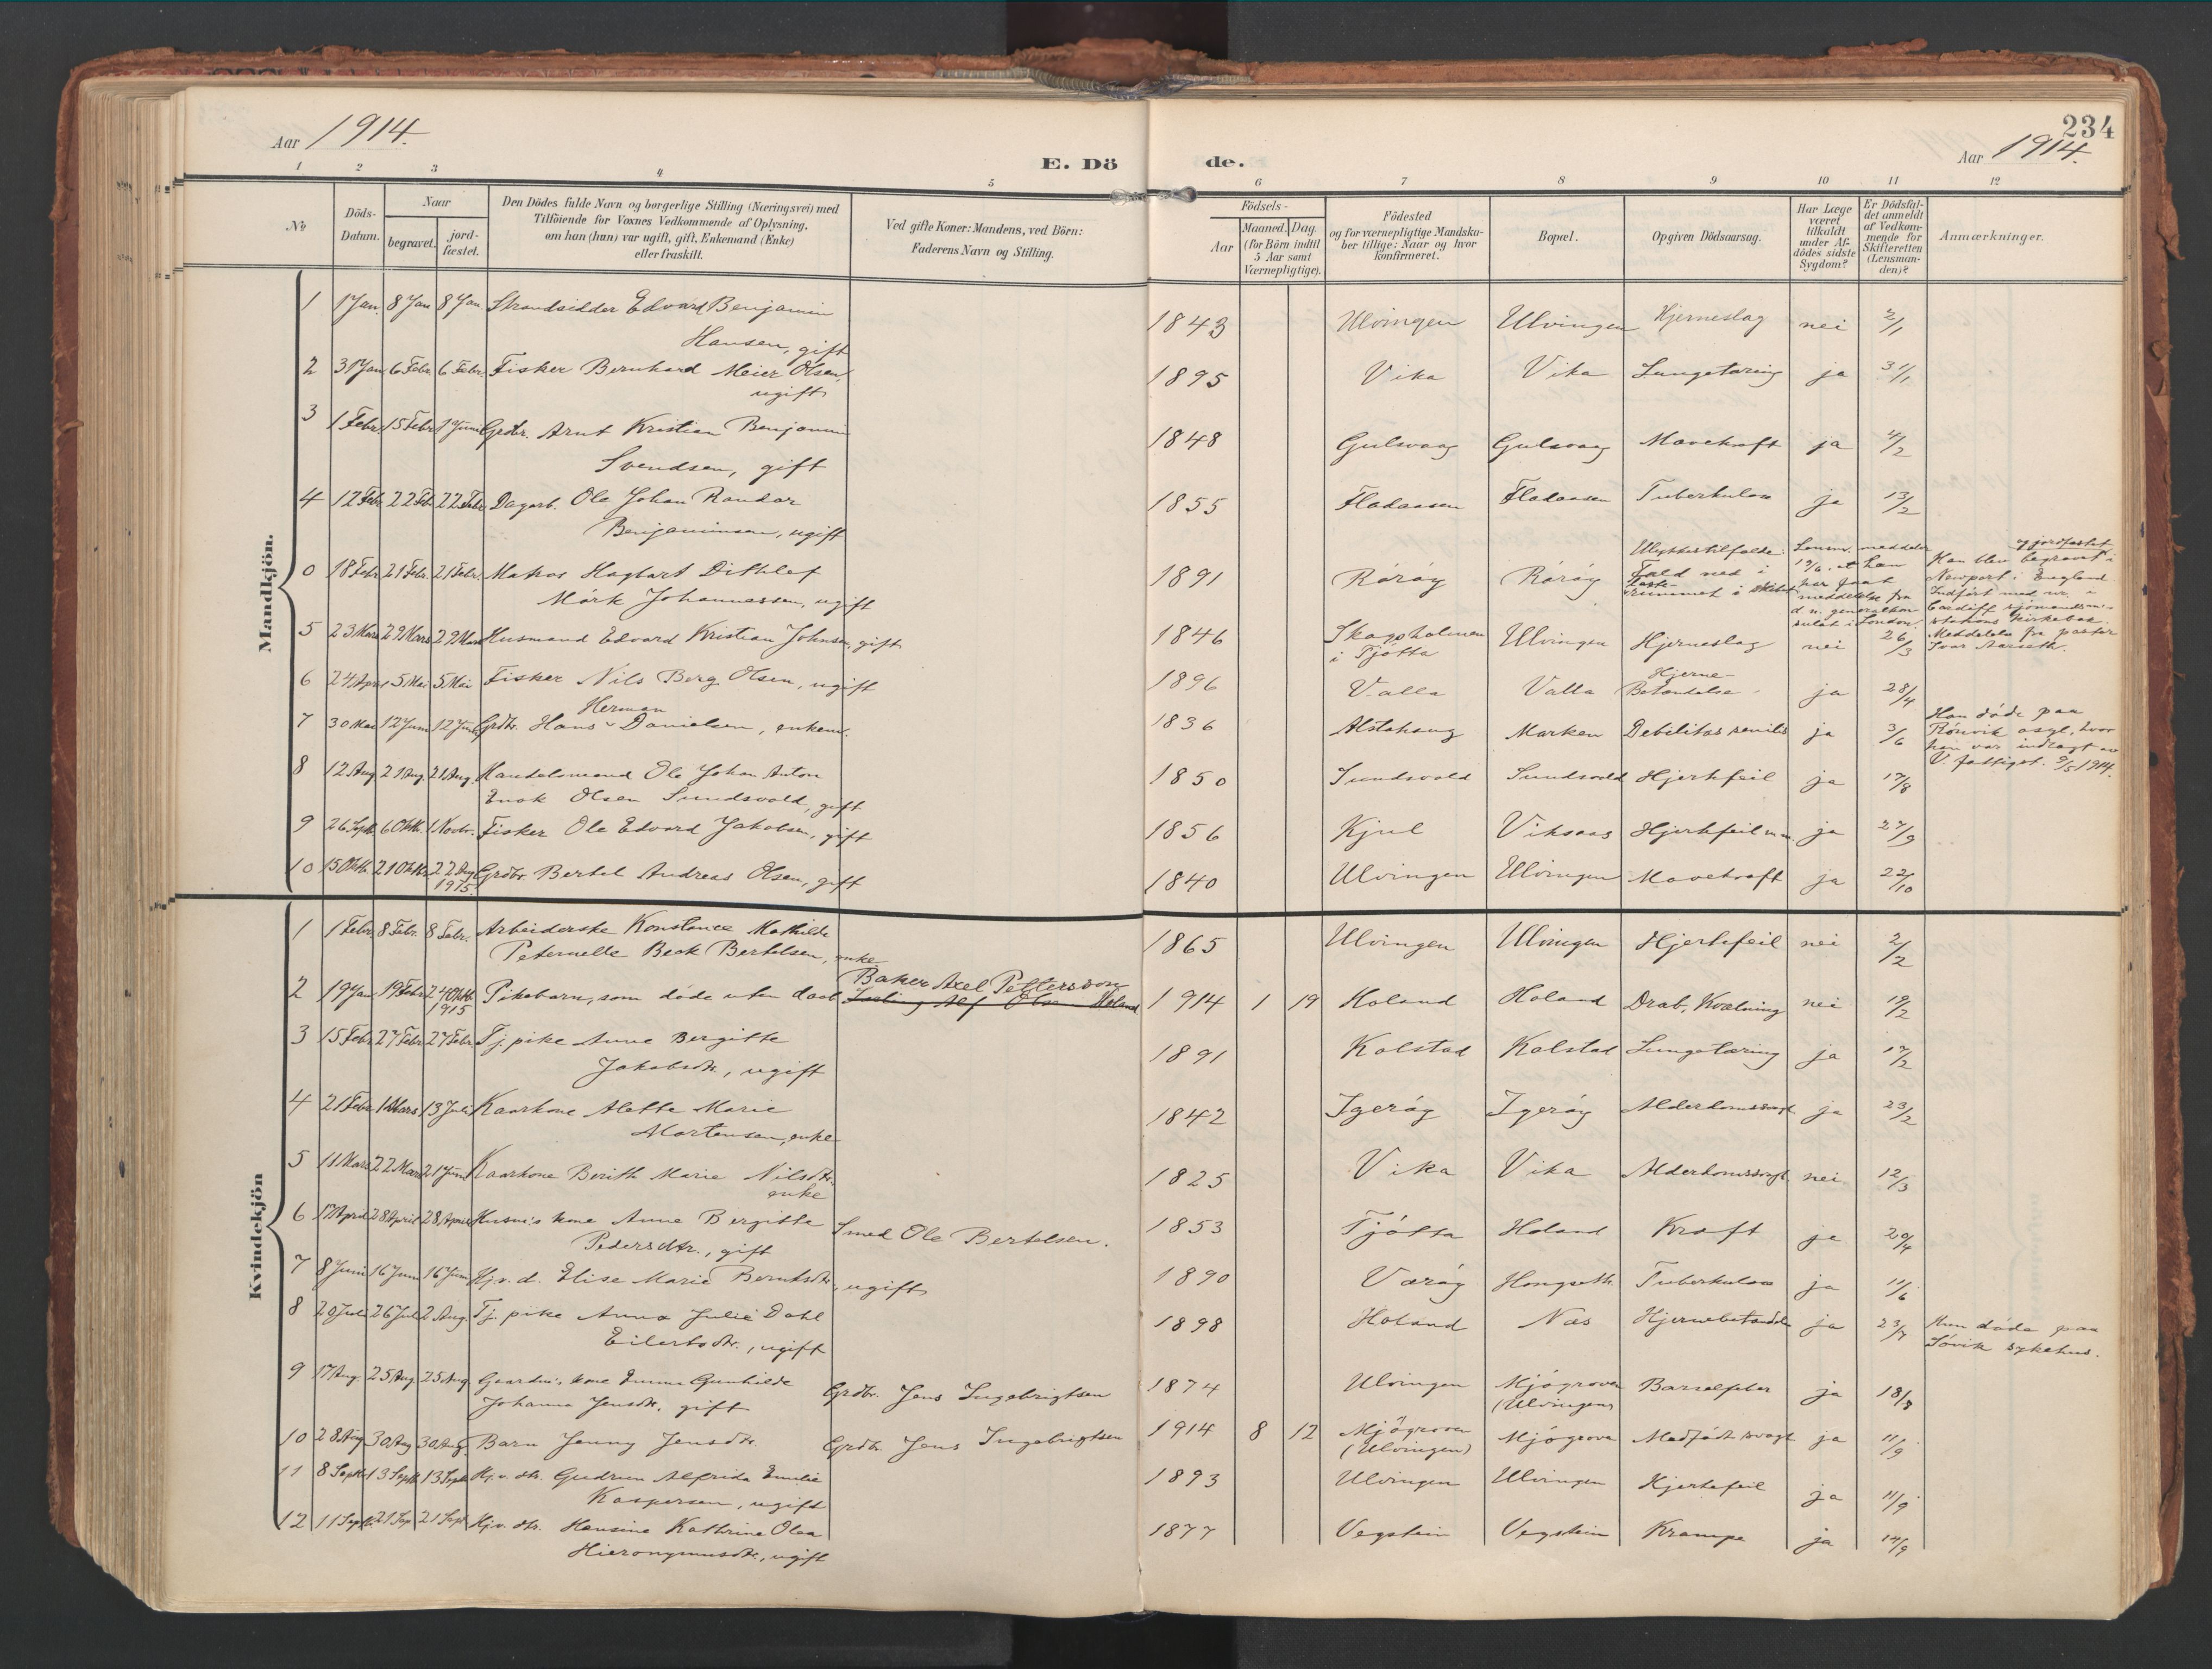 234
Aar 1914.
E. Dö de.
Aar 1914.
1 2 3 4 5 6 7 8 9 10 11 12
№
Döds-Datum.
Naar
begravet.
jord-fæstet.
Den Dödes fulde Navn og borgerlige Stilling (Næringsvei) med
Tilföiende for Voxnes Vedkommende af Oplysning,
om han (hun) var ugift, gift, Enkemand (Enke)
eller fraskilt.
Ved gifte Koner: Mandens, ved Börn:
Faderens Navn og Stilling.
Födsels-
Aar
Maaned. Dag.
(for Börn indtil
5 Aar samt
Værnepligtige).
Födested
og for værnepligtige Mandska-
ber tillige: Naar og hvor
konfirmeret.
Bopæl.
Opgiven Dödsaarsag.
Har Læge
været
tilkaldt
under Af-
dödes sidste
Sygdom?
Er Dödsfal-
det anmeldt
af Vedkom-
mende for
Skifteretten
(Lensman-
den)?
Anmærkninger.
Mandkjön.
1 1 Jan. 8 Jan 8 Jan. Strandsidder Edvard Benjamin
Hansen, gift 1843 Ulvingen Ulvingen Hjerneslag nei 2/1
2 31 Jan 6 Febr. 6 Febr. Fisker Bernhard Meier Olsen,
ugift 1895 Vika Vika Lungetæring ja 31/1
3 1 Febr. 15 Febr 1 Juni Grdbr. Arnt Kristian Benjamin
Svendsen, gift 1848 Gulsvaag Gulsvaag Mavekræft ja 4/2
4 12 Febr 22 Feb. 22 Febr Dagarb. Ole Johan Randar
Benjaminsen, ugift 1855 Fladaasen Fladaasen Tuberkulose ja 13/2
0 18 Febr. 21 Febr. 21 Febr. Matros Hagbart Dithlef
Mørk Johannessen, ugift 1891 Rørøy Rørøy
Ulykkestilfælde.
Fald ned i
laste-
rummet i skibet
Lensm. meddeler
19/6. at han
har faat
meddelelse fra
d n. generalkon
sulat i London.
og jordfæstet
Han blev begravet i
Newport i England.
Indført med nr. i
Cardiff sjømandsmi-
stations kirkebok.
Meddelelse fra pastor
Ivar Aarseth.
5 23 Mars 29 Mars 29 Mars Husmand Edvard Kristian Johnsen, gift 1846 Skogsholmen
i Tjøtta Ulvingen Hjerneslag nei 26/3
6 24 April 5 Mai 5 Mai Fisker Nils Berg Olsen, ugift 1896 Valla Valla Hjerne-
Betændelse ja 28/4
Herman
7 30 Mai 12 Juni 12 Juni Grdbr. Hans Danielsen, enkem. 1836 Alstahaug Marken Debilitas senilis ja 3/6
Han døde paa
Rønvik asyl, hvor
han var indlagt av
V. fattigst. 9/5 1914.
8 12 Aug 21 Aug. 21 Aug. Handelsmand Ole Johan Anton
Enok Olsen Sundsvold, gift 1850 Sundsvold Sundsvold Hjertefeil ja 17/8
9 26 Septb. 6 Oktb. 1 Novbr. Fisker Ole Edvard Jakobsen, gift 1856 Kjul Viksaas Hjertefeil m.m. ja 27/9
10 15 Oktb. 21 Oktbr. 22 Aug
1915. Grdbr. Bertel Andreas Olsen, gift 1840 Ulvingen Ulvingen Mavekræft ja 22/10
Kvindekjön
1 1 Febr. 8 Febr. 8 Febr. Arbeiderske Konstance Mathilde
Peternelle Beck Bertelsen, enke 1865 Ulvingen Ulvingen Hjertefeil nei 2/2
2 19 Jan. 19 Febr 24 Oktb.
1915 Pikebarn, som døde uten daab Baker Axel Pettersson
Alf Olsen Høland 1914 1 19 Høland Høland Drab, Kvælning nei 19/2
3 15 Febr 27 Febr 27 Febr. Tj. pike Anne Bergitte
Jakobsdtr., ugift 1891 Kolstad Kolstad Lungetæring ja 17/2
4 21 Febr 1 Mars 13 Juli Kaarkone Alette Marie
Mortensen, enke 1842 Igerøy Igerøy Alderdomssvagh. ja 23/2
5 11 Mars 22 Mars 21 Juni Kaarkone Berith Marie Nilsdtr.
enke 1825 Vika Vika Alderdomssvagh. nei 12/3
6 17 April 28 April 28 April Husm's kone Anne Bergitte
Pedersdtr., gift Smed Ole Bertelsen. 1853 Tjøtta Høland Kræft ja 20/4
7 8 Juni 16 Juni 16 Juni Hj. v. d. Elise Marie Berntsdtr., ugift 1890 Værøy Hongseth. Tuberkulose ja 11/6
8 20 Juli 26 Juli 2 Aug. Tj. pike Anna Julie Dahl
Eilertsdtr., ugift 1898 Høland Næs Hjernebetændelse ja 23/7 Hun døde paa
Søvik sykehus.
9 17 Aug. 25 Aug 25 Aug Gaardm's kone Emma Gunhilde
Johanna Jensdtr. gift Grdbr. Jens Ingebrigtsen 1874 Ulvingen Mjøgroven
(Ulvingen) Barselfeber ja 18/8
10 28 Aug 30 Aug 30 Aug. Barn Jenny Jensdtr. Grdbr. Jens Ingebrigtsen 1914 8 12 Mjøgroven
(Ulvingen) Mjøgroven Medfødt svagh. ja 11/9
11 8 Septb. 13 Septb. 13 Septb Hj. v. dtr. Gudrun Alfrida Emilie
Kaspersen, ugift 1893 Ulvingen Ulvingen Hjertefeil ja 11/9
12 11 Septb. 21 Sep. 21 Sept Hj. v. dtr. Hansine Kathrine Olea
Hieronymusdtr., ugift 1877 Vegstein Vegstein Krampe ja 14/9